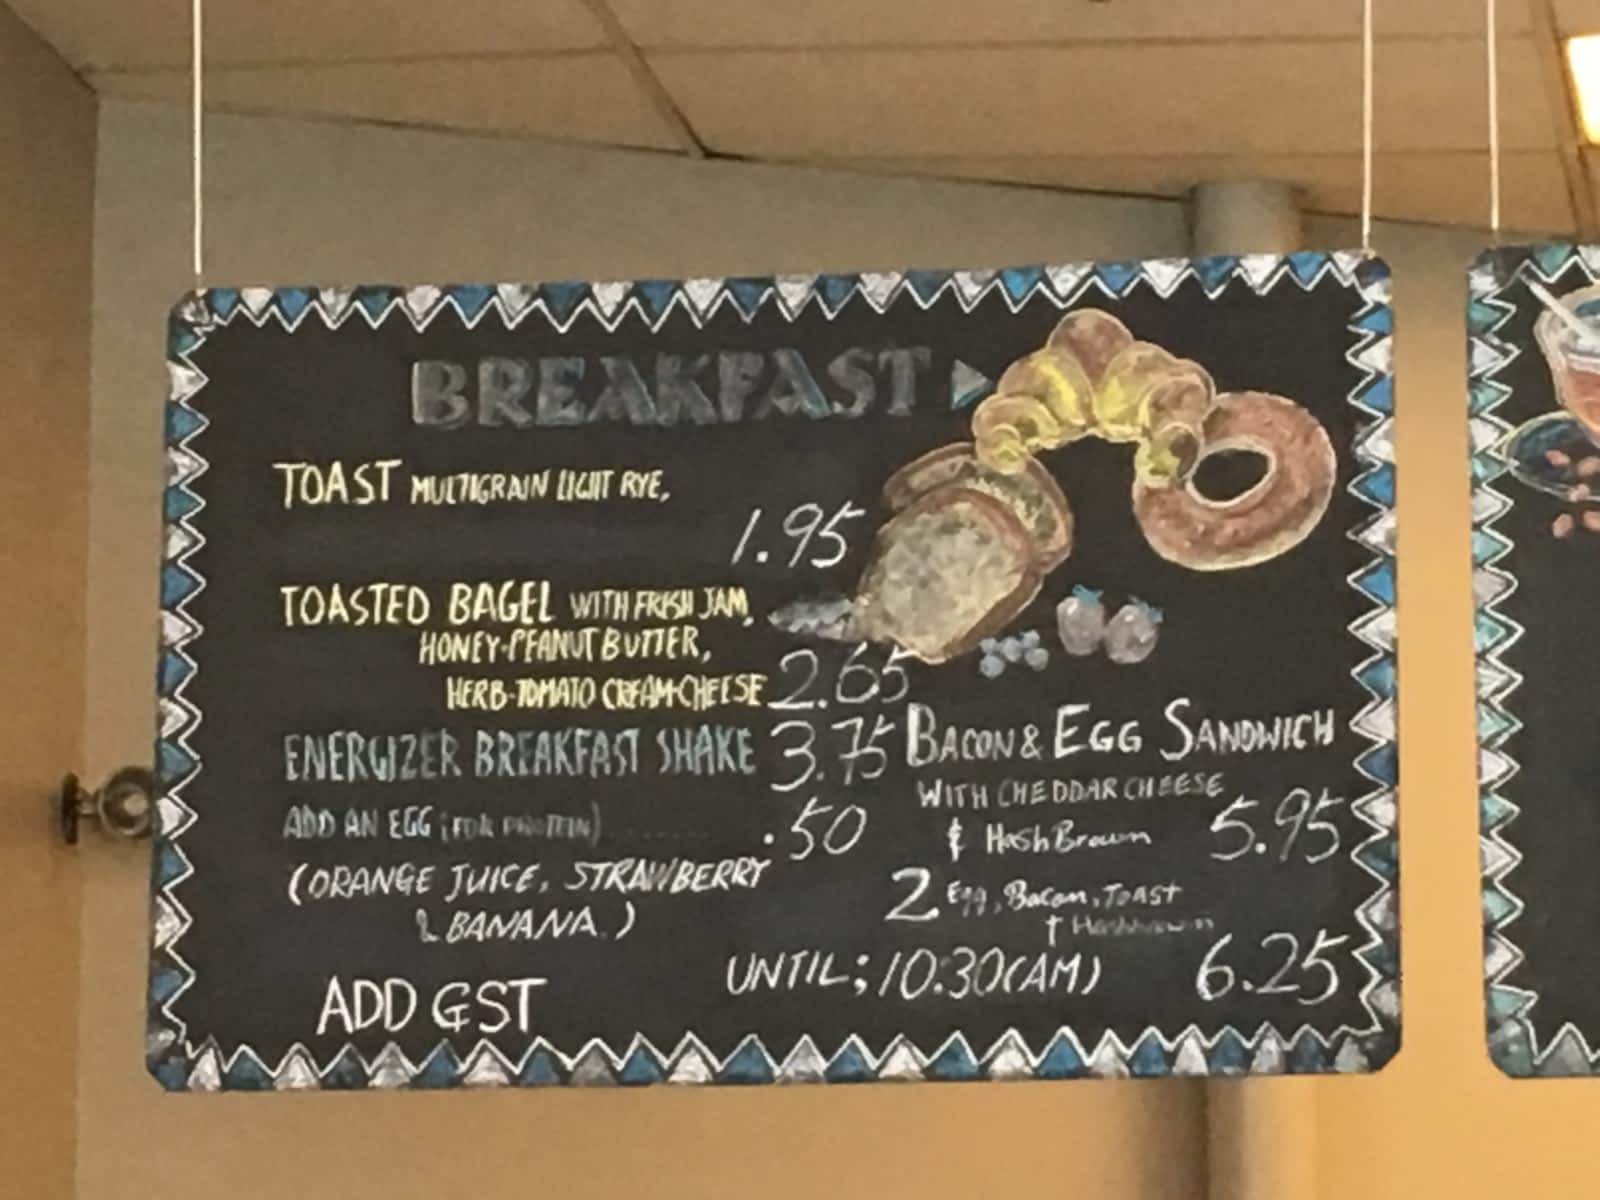 BREAKFAST
TOAST MULTIGRAIN LIGHT RYE,
1.95
TOASTED BAGEL WITH FRESH JAM,
HONEY-PEANUT BUTTER,
HERB-TOMATO CREAM-CHEESE 2.65
ENERGIZER BREAKFAST SHAKE 3.75
ADD AN EGG (FOR PROTEIN) ........ .50
(ORANGE JUICE, STRAWBERRY
& BANANA.)
ADD GST
BACON & EGG SANDWICH
WITH CHEDDAR CHEESE
& Hash Brown 5.95
2 Egg, Bacon, TOAST
+ Hashbrown
6.25
UNTIL; 10:30(AM)